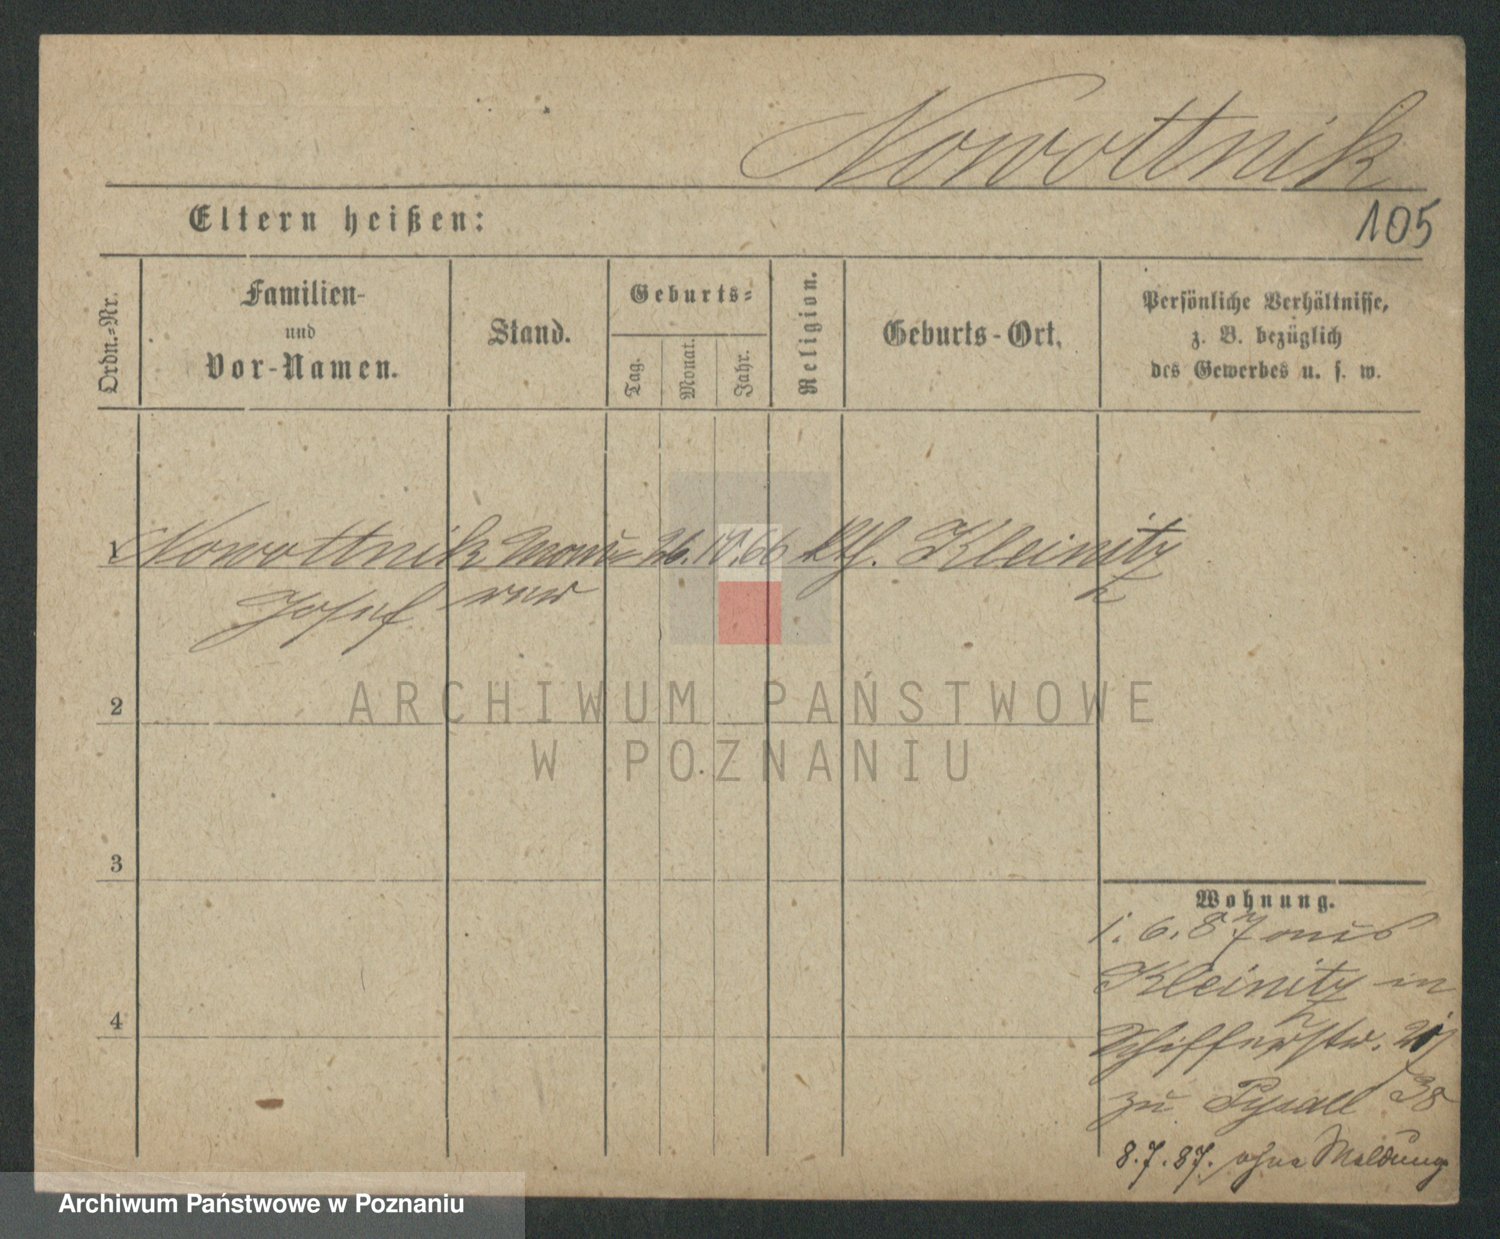 Nowottnik
105
Eltern heißen:
Ordn.-Nr.
Familien-
und
Vor-Namen.
Stand.
Geburts-
Tag.
Monat.
Jahr.
Religion.
Geburts-Ort.
Persönliche Verhältnisse,
z. B. bezüglich
des Gewerbes u. s. w.
1 Nowottnik Mau 26. 66 Kth. Kleinitz
Josef rer
2
ARCHIWUM PAŃSTWOWE
W POZNANIU
3
4
Wohnung.
1. 6. 87 aus
Kleinitz in
Schifferstr.
zu
8. 7. 87. ohne Meldung
Archiwum Państwowe w Poznaniu